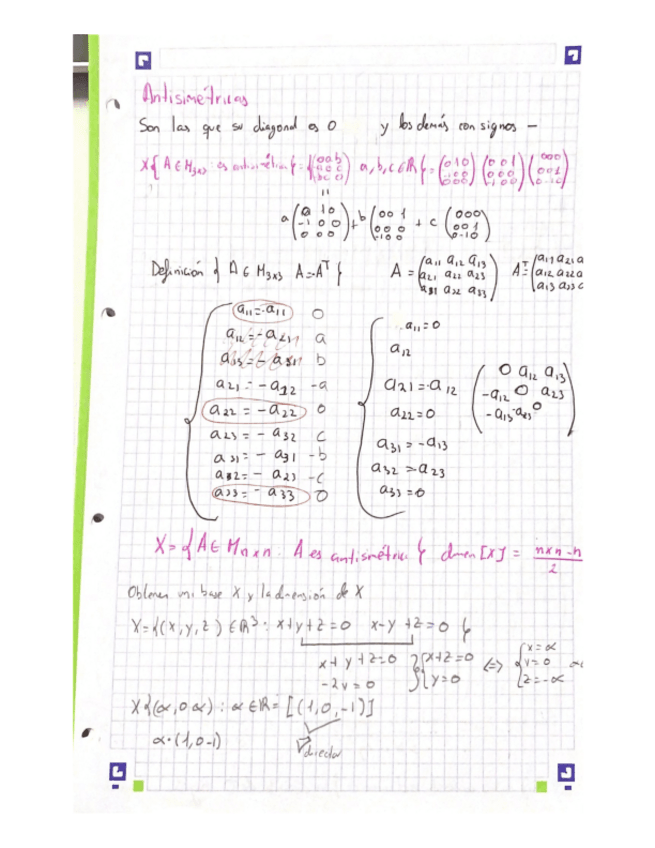 Antisimétricas
Son las que su diagonal es 0 y los demás con signos -
X{ A ∈ M3x3 : es antisimétrica } = { (0 a b / a 0 c / b c 0) a, b, c ∈ R } = (0 1 0 / -1 0 0 / 0 0 0) (0 0 1 / 0 0 0 / -1 0 0) (0 0 0 / 0 0 1 / 0 -1 0)
=
a (0 1 0 / -1 0 0 / 0 0 0) + b (0 0 1 / 0 0 0 / -1 0 0) + c (0 0 0 / 0 0 1 / 0 -1 0)
Definición { A ∈ M3x3 A=-A^T } A = (a11 a12 a13 / a21 a22 a23 / a31 a32 a33) A^T = (a11 a21 a / a12 a22 a / a13 a23 a
a11=-a11 0
a12=-a21 a
a13=-a31 b
a21=-a12 -a
a22=-a22 0
a23=-a32 c
a31=-a31 -b
a32=-a23 -c
a33=-a33 0
a11=0
a12
a21=-a12
a22=0
a31=-a13
a32=-a23
a33=0
(0 a12 a13 / -a12 0 a23 / -a13 -a23 0)
X={ A ∈ Mnxn : A es antisimétrica } dimen [X] = nxn-n / 2
Obtener una base X y la dimensión de X
X={(x,y,z) ∈ R³ : x+y+z=0 x-y+z=0 }
x+y+z=0
-2y=0
{ x+z=0
y=0
⇔ { x=α
y=0
z=-α
X{(α,0 α) : α ∈ R = [(1,0,-1)]
α·(1,0-1)
V director